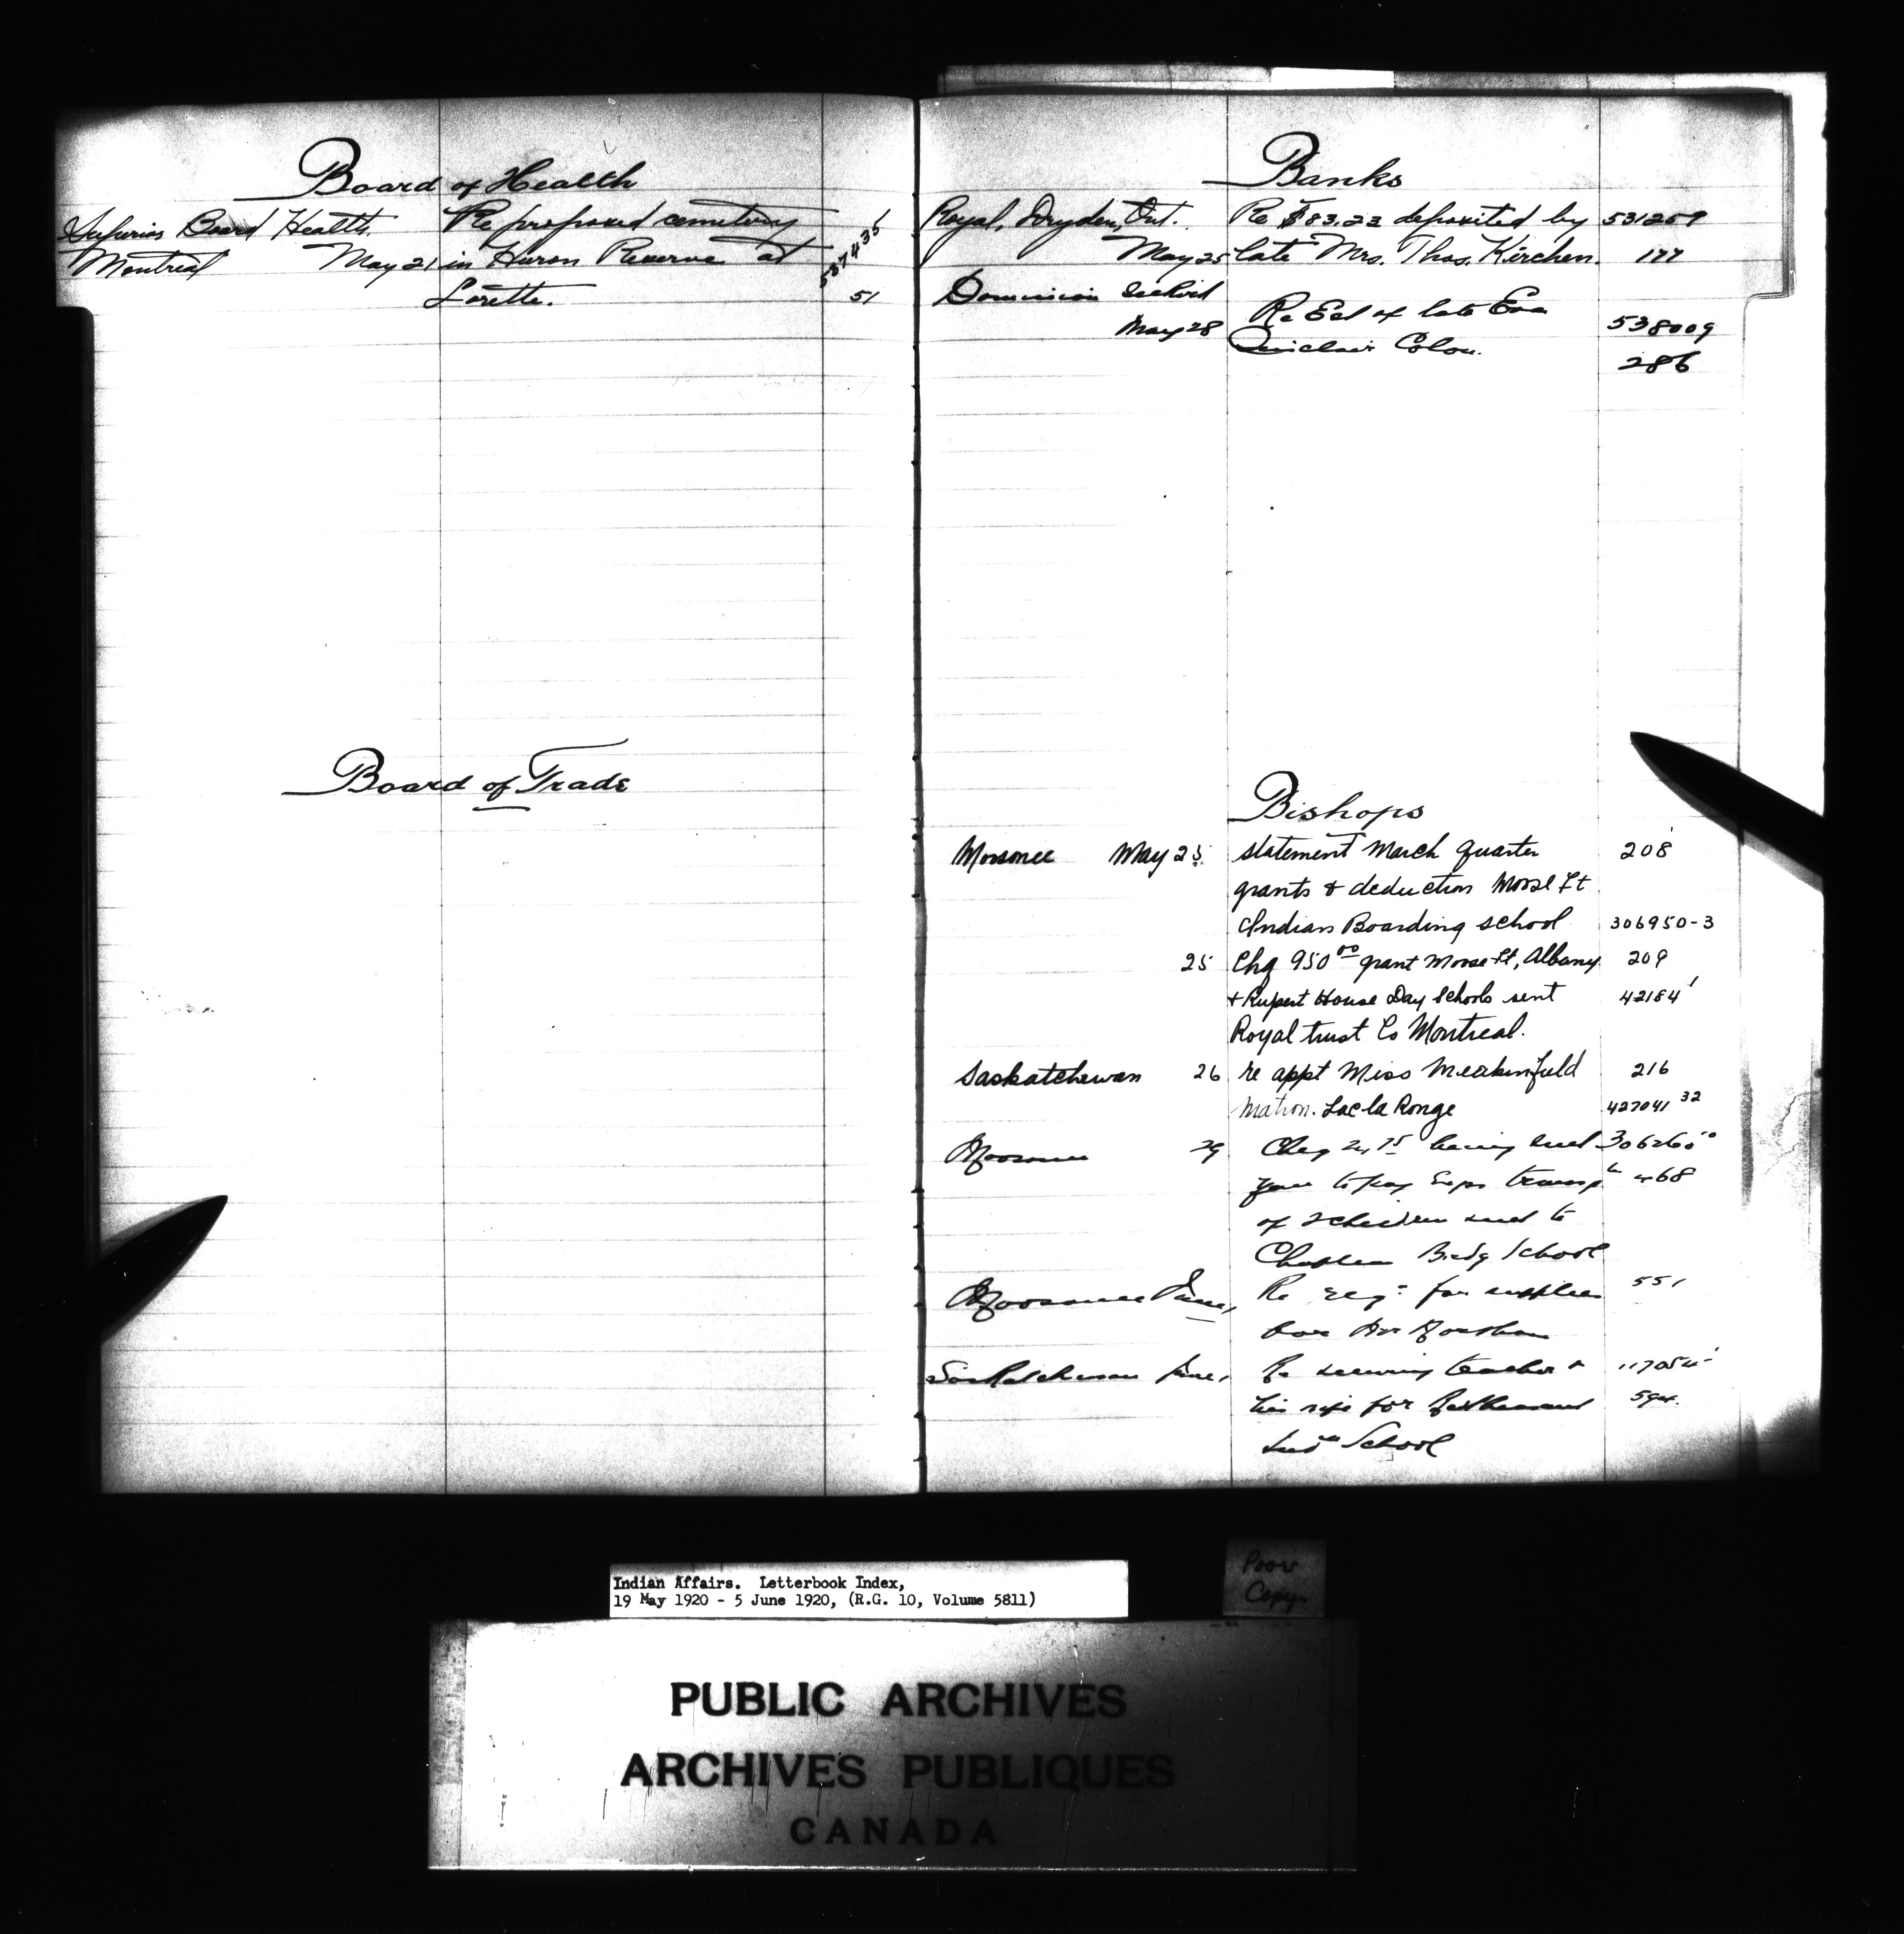 Board of Health
Superior Board Health Re proposed cemetery
Montreal May 21 in Huron Reserve at 537435
Lorette. 51
Board of Trade
Banks
Royal, Dryden, Ont. Re $83.22 deposited by 531259
May 25 late Mrs. Thos. Kirchen. 177
Dominion
May 28 Re Est of late Eva 538009
Sinclair Colon. 286
Bishops
Moosonee May 25 statement March quarter 208
grants & deduction Moose Ft
Indian Boarding School 306950-3
25 Chq 950 00 grant Moose Ft, Albany 209
& Rupert House Day Schools sent 42184
Royal trust Co Montreal.
Saskatchewan 26 re appt Miss 216
Matron. Lac la Ronge 427041 32
Moosonee 29 Cheq being sent
you to pay Exps 468
of children sent to
Chapleau Brdg School
Moosonee June 1 Re req: for supplies 551
for
Saskatchewan June 1 Re securing teacher &
his wife for
Ind School
Indian Affairs. Letterbook Index,
19 May 1920 - 5 June 1920, (R.G. 10, Volume 5811)
Poor
Copy
PUBLIC ARCHIVES
ARCHIVES PUBLIQUES
CANADA